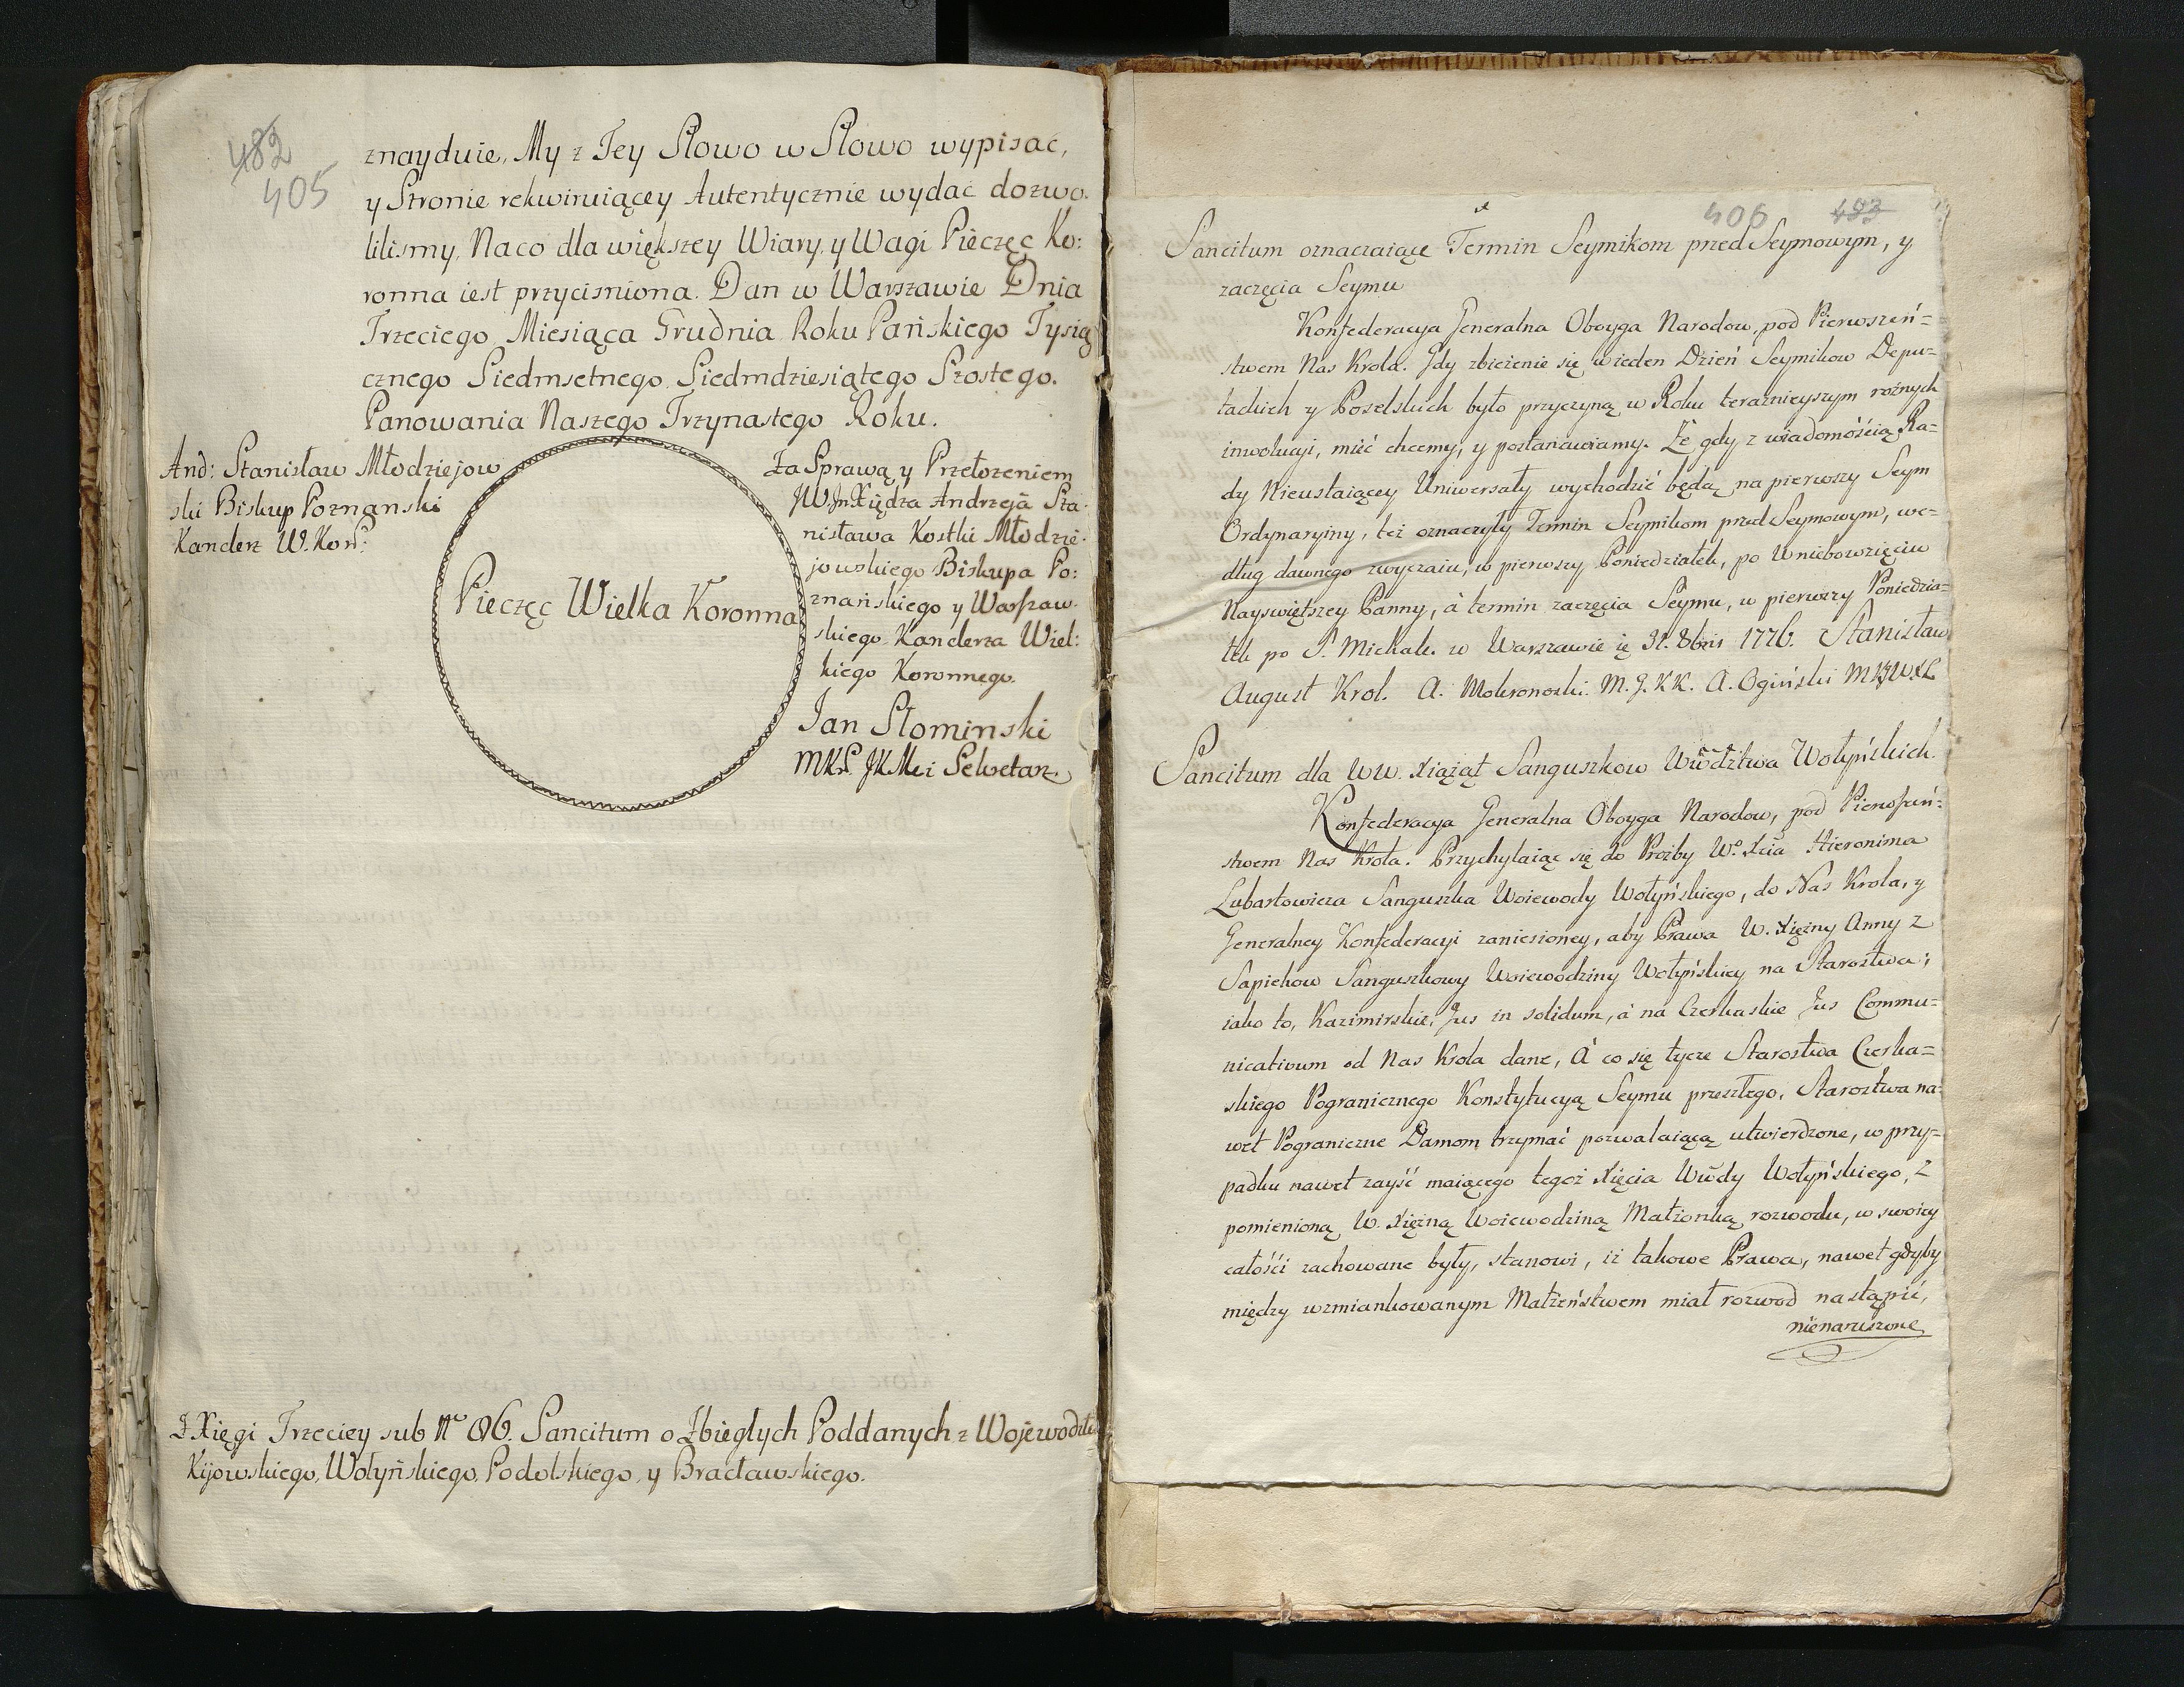 482
405
znayduie, My z Jey Słowo w Słowo wypisac,
y Stronie rekwiruiącey Autentycznie wydać dozwo.
lilismy, Naco dla większey Wiary, y Wagi Pieczęc Ko:
ronna iest przycisniona. Dan w Warszawie Dnia
Trzeciego Miesiąca Grudnia Roku Pańskiego Tysią
cznego Siedmsetnego Siedmdziesiątego Szostego.
Panowania Naszego Trzynastego Roku.
And: Stanisław Młodziejow
ski Biskup Poznanski
Kanclerz W. Kor:
Pieczęc Wielka Koronna
Za Sprawą y Przełozeniem
JW Jm Xiędza Andrzeja Sta
nisława Kostki Młodzie.
jowskiego Biskupa Po:
znańskiego y Warszaw.
skiego Kanclerza Wiel:
kiego Koronnego.
Jan Słominski
MKP. JKMci Sekretarz
Z Xięgi Trzeciey sub No 86. Sancitum o Zbiegłych Poddanych z Wojewodztw
Kijowskiego, Wołyńskiego, Podolskiego, y Bracławskiego.
406 483
Sancitum oznaczaiące Termin Seymikom przed Seymowym, y
zaczęcia Seymu
Konfederacya Generalna Oboyga Narodow, pod Pierwszeń=
stwem Nas Krola. Gdy zbieżenie się w ieden Dzień Seymikow Depu=
tackich y Poselskich było przyczyną w Roku teraznieyszym rożnych
inwolucji, mieć chcemy, y postanawiamy. Że gdy z wiadomością Ra=
dy Nieustaiącey Uniwersały wychodzić będą na pierwszy Seym
Ordynaryiny, też oznaczyły Termin Seymikom przed Seymowym, we=
dług dawnego zwyczaiu, w pierwszy Poniedziałek, po Wniebowzięciu
Nayswiętszey Panny, à termin zaczęcia Seymu, w pierwszy Poniedzia=
łek po S. Michale. w Warszawie 31. 8bris 1776. Stanisław
August Krol. A. Mokronoski. M. G. KK. A. Ogiński
Sancitum dla WW. Xiążąt Sanguszkow Wwdztwa Wołyńskich.
Konfederacya Generalna Oboyga Narodow, pod Pierwszeń=
stwem Nas Krola. Przychylaiąc się do Prozby Wo. Xcia Hieronima
Lubartowicza Sanguszka Woiewody Wołyńskiego, do Nas Krola, y
Generalney Konfederacyi zaniesioney, aby Prawa W. Xiężny Anny z
Sapiehow Sanguszkowy Woiewodziny Wołyńskiey na Starostwa;
iako to, Kazimirskie, Jus in solidum, à na Czerkaskie Jus Commu=
nicativum od Nas Krola dane, À co się tycze Starostwa Czerka=
skiego Pogranicznego Konstytucyą Seymu przeszłego, Starostwa na=
wet Pograniczne Damom trzymać pozwalaiącą utwierdzone, w przy=
padku nawet zayść maiącego tegoż Xięcia Wwdy Wołyńskiego, z
pomienioną W. Xiężną Woiewodziną Małżonką rozwodu, w swoiey
całości zachowane były, stanowi, iż takowe Prawa, nawet gdyby
między wzmiankowanym Małżeństwem miał rozwod nastąpić,
nienaruszone